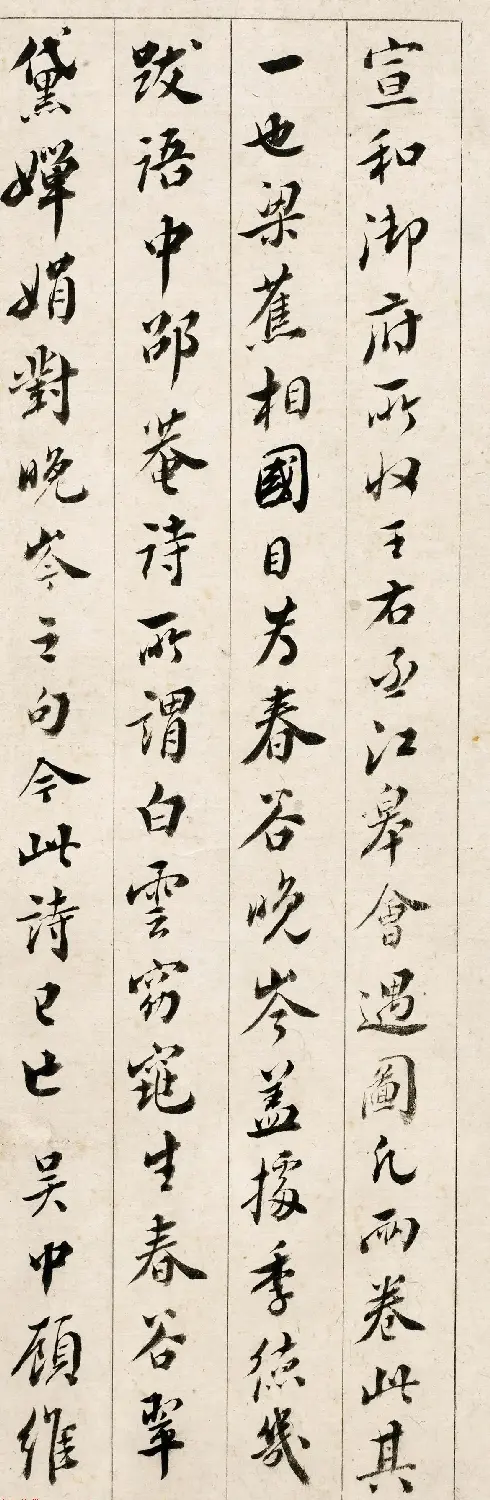 宣和御府所收王右丞江皋會遇圖凡兩卷此其
一也梁蕉相國目為春谷晚岑蓋據季德幾
跋語中邵菴詩所謂白雲窈窕生春谷翠
黛嬋娟對晚岑之句今此詩已亡吳中顧維